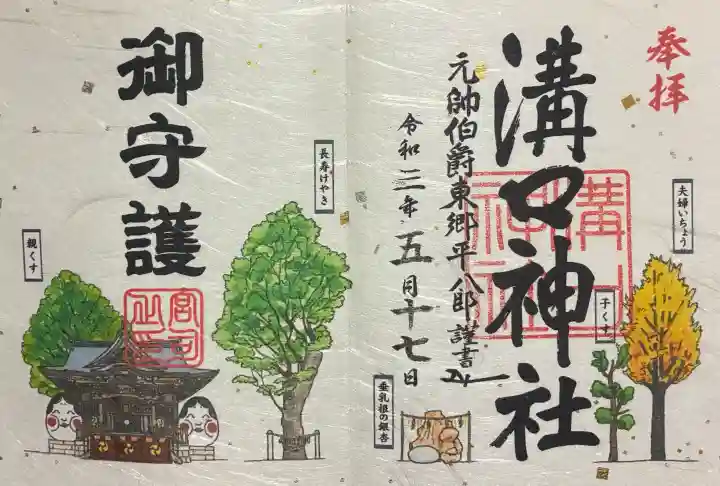 奉拝
夫婦いちょう
溝口神社
溝口神社
子くす
元帥伯爵東郷平八郎謹書
令和三年五月十七日
垂乳根の銀杏
長寿けやき
御守護
宮司之印
親くす